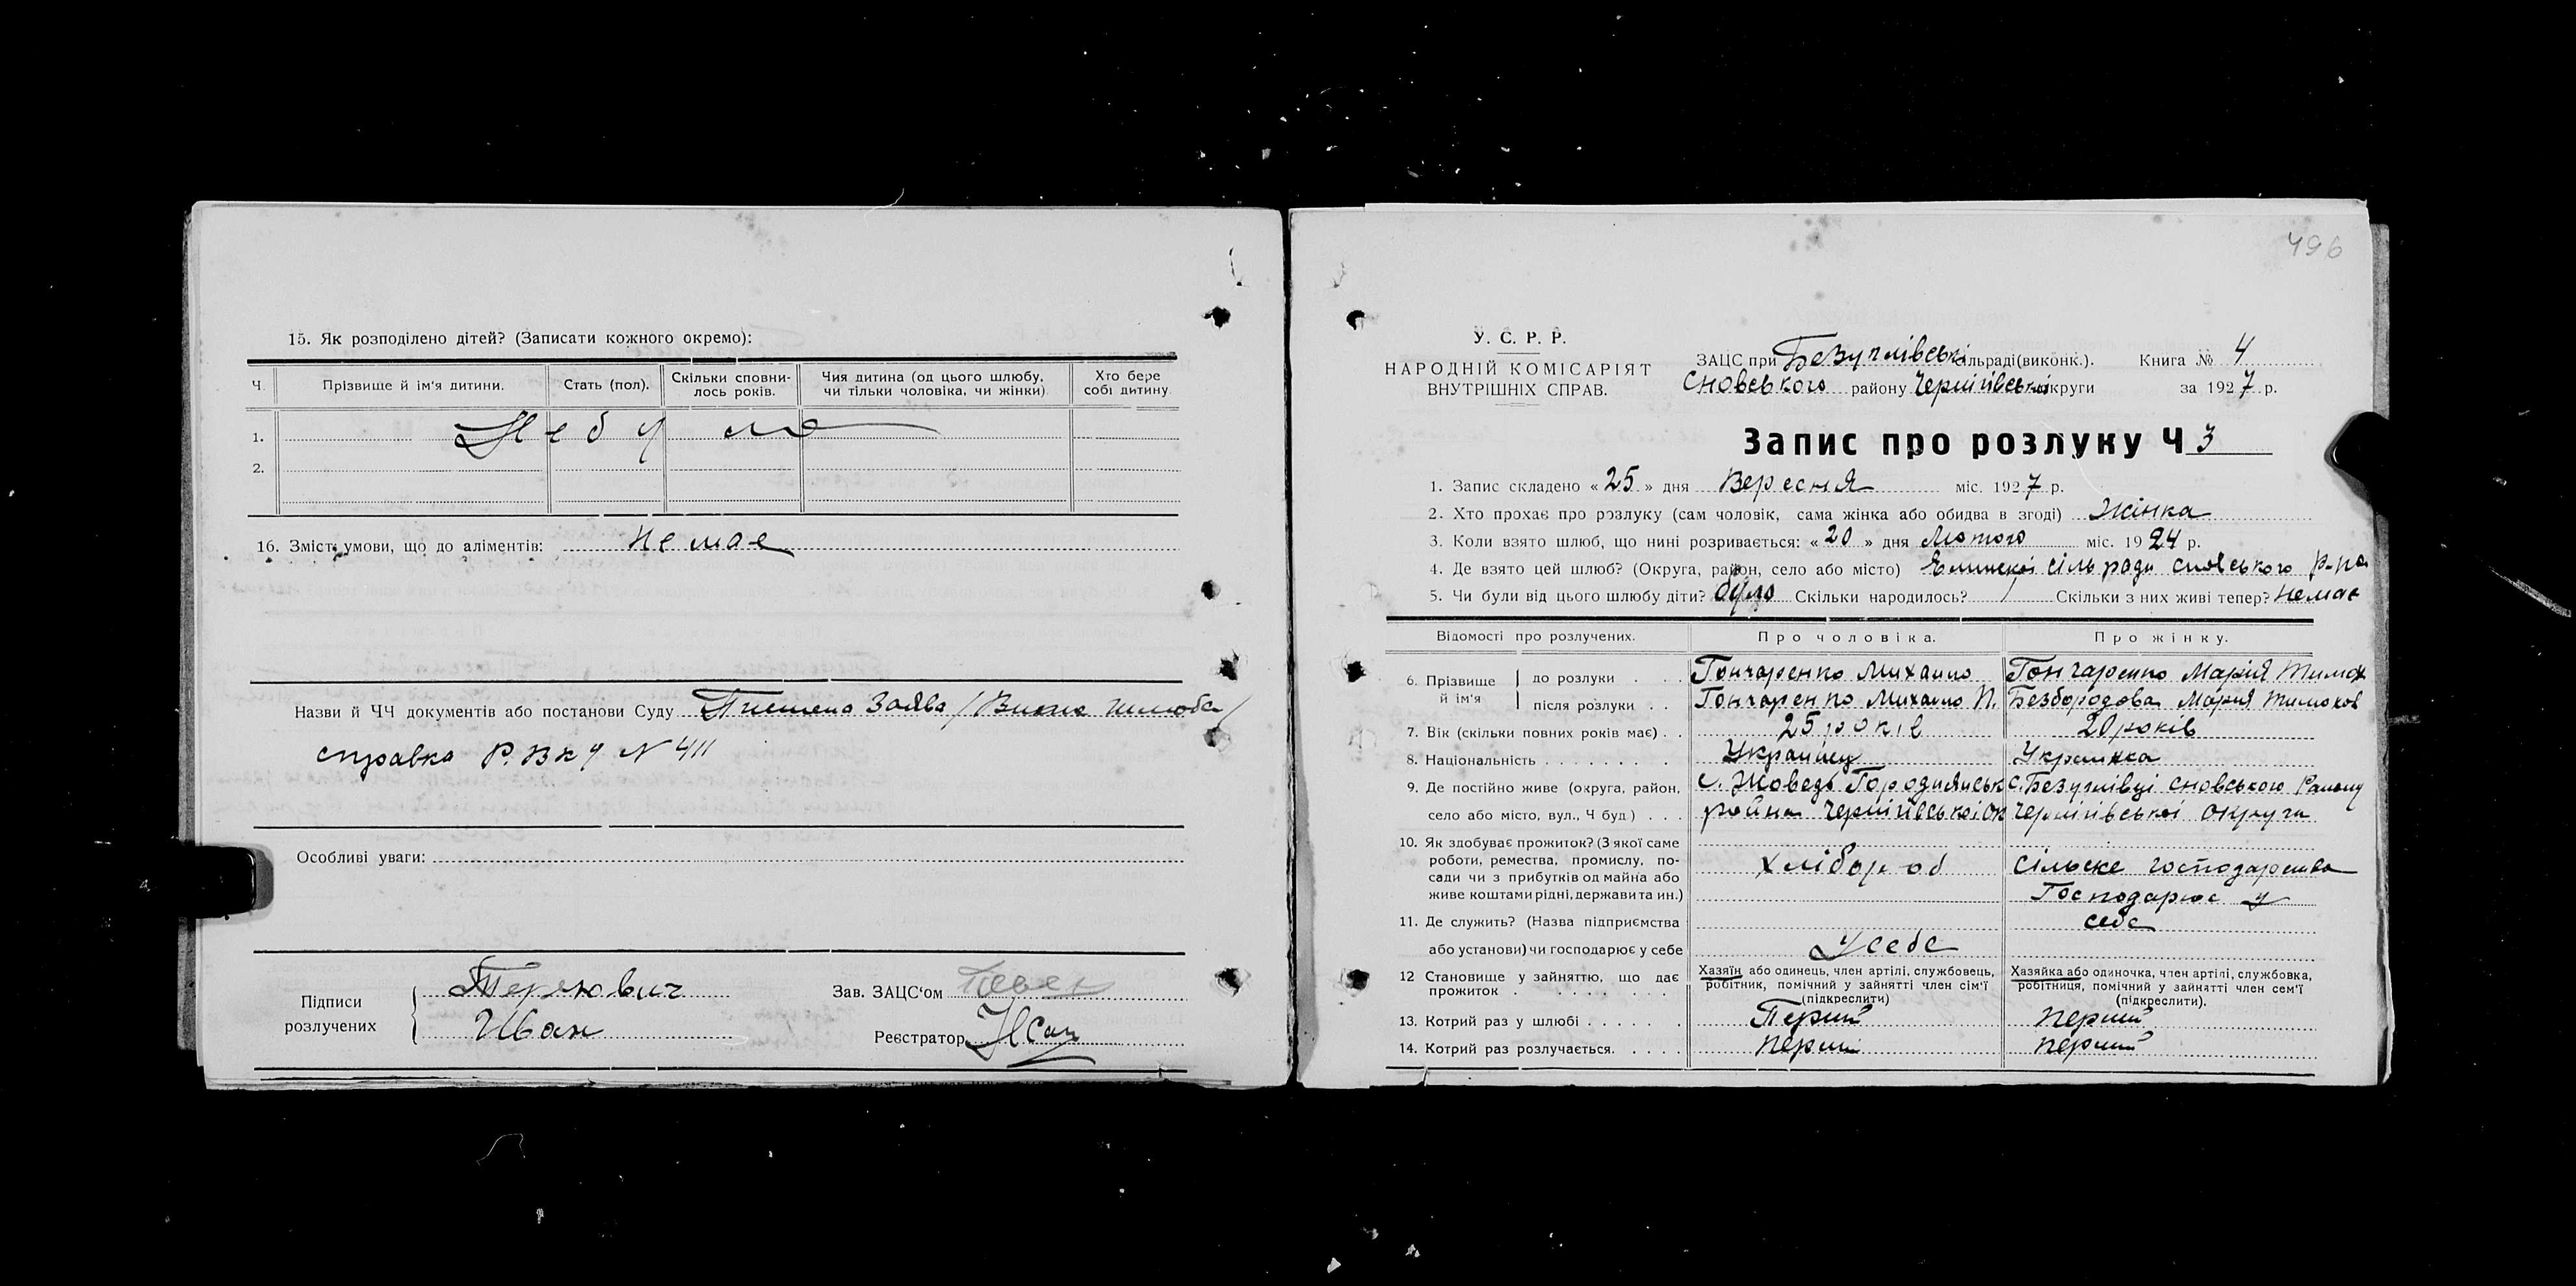 15. Як розподілено дітей? (Записати кожного окремо):
Ч. Прізвище й ім'я дитини. Стать (пол). Скільки сповнилось років. Чия дитина (од цього шлюбу, чи тільки чоловіка, чи жінки) Хто бере собі дитину.
1. Не було
2.
16. Зміст умови, що до аліментів: Немає
Назви й ЧЧ документів або постанови Суду Писмена Заява /
справка Р.В.К у N 411
Особливі уваги:
Підписи розлучених
Иван
Зав. ЗАЦС'ом
Реєстратор
496
У. С. Р. Р.
НАРОДНІЙ КОМІСАРІЯТ
ВНУТРІШНІХ СПРАВ.
ЗАЦС при Безуглівські сільраді (виконк.). Книга № 4
Сновського району Чернігівської округи за 1927 р.
Запис про розлуку Ч 3
1. Запис складено « 25 » дня Вересня міс. 1927 р.
2. Хто прохає про розлуку (сам чоловік, сама жінка або обидва в згоді) Жінка
3. Коли взято шлюб, що нині розривається: « 20 » дня Лютого міс. 1924 р.
4. Де взято цей шлюб? (Округа, район, село або місто) Елинскої сільради сновського р-на
5. Чи були від цього шлюбу діти? було Скільки народилось? 1 Скільки з них живі тепер? Немає
Відомості про розлучених. Про чоловіка. Про жінку.
6. Прізвище й ім'я до розлуки Гончаренко Михаило Гончаренко Мария Тимох
після розлуки Гончаренко Михаило П. Безбородова Мария Тимохов
7. Вік (скільки повних років має) 25 років 20 років
8. Національність Українец Українка
9. Де постійно живе (округа, район, с. Жоведь Городнянськ с. Безуглівці сновського Району
село або місто, вул., Ч буд) района Чернігівської ок Чернігівської округи
10. Як здобуває прожиток? (З якої саме
роботи, ремества, промислу, посади чи з прибутків од майна або
живе коштами рідні, держави та ин.) хлібороб Сільске господарства
11. Де служить? (Назва підприємства Господарює у себе
або установи) чи господарює у себе У себе
12 Становище у зайняттю, що дає прожиток
Хазяїн або одинець, член артілі, службовець, робітник, помічний у зайнятті член сім'ї (підкреслити)
Хазяйка або одиночка, член артілі, службовка, робітниця, помічний у зайнятті член сем'ї (підкреслити).
13. Котрий раз у шлюбі Перший перший
14. Котрий раз розлучається. перший перший